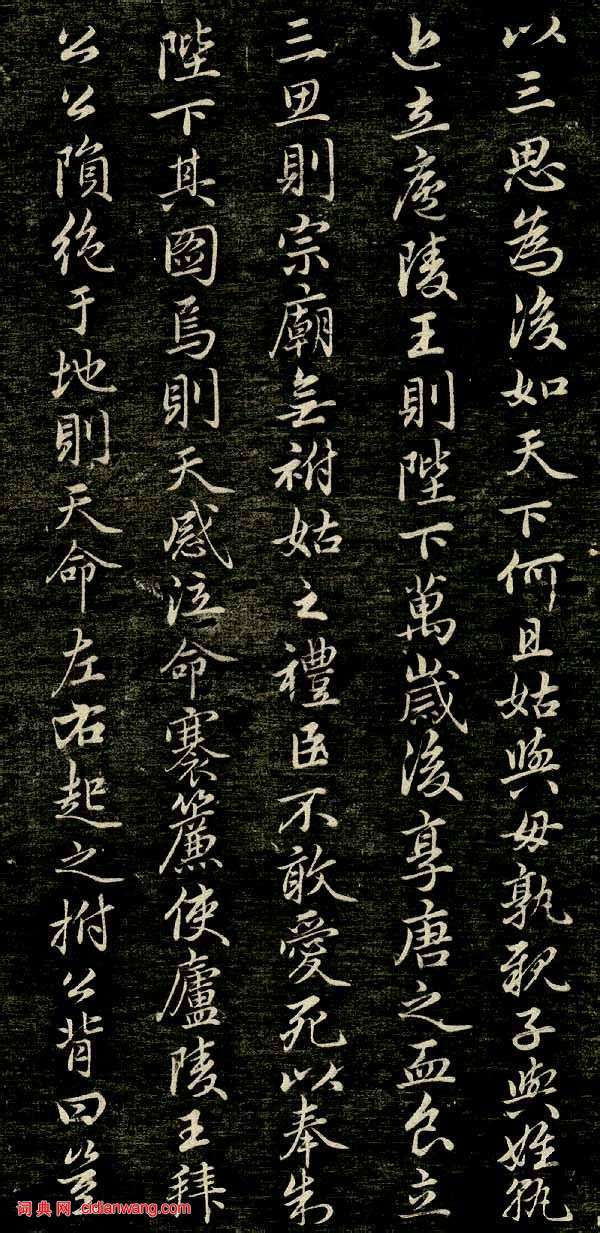 以三思為後如天下何且姑與母孰親子與姪孰
近立廬陵王則陛下萬歲後享唐之血食立
三思則宗廟無祔姑之禮臣不敢愛死以奉制
陛下其圖焉則天感泣命褰簾使廬陵王拜
公公隕絕于地則天命左右起之拊公背曰豈
词典网 cidianwang.com